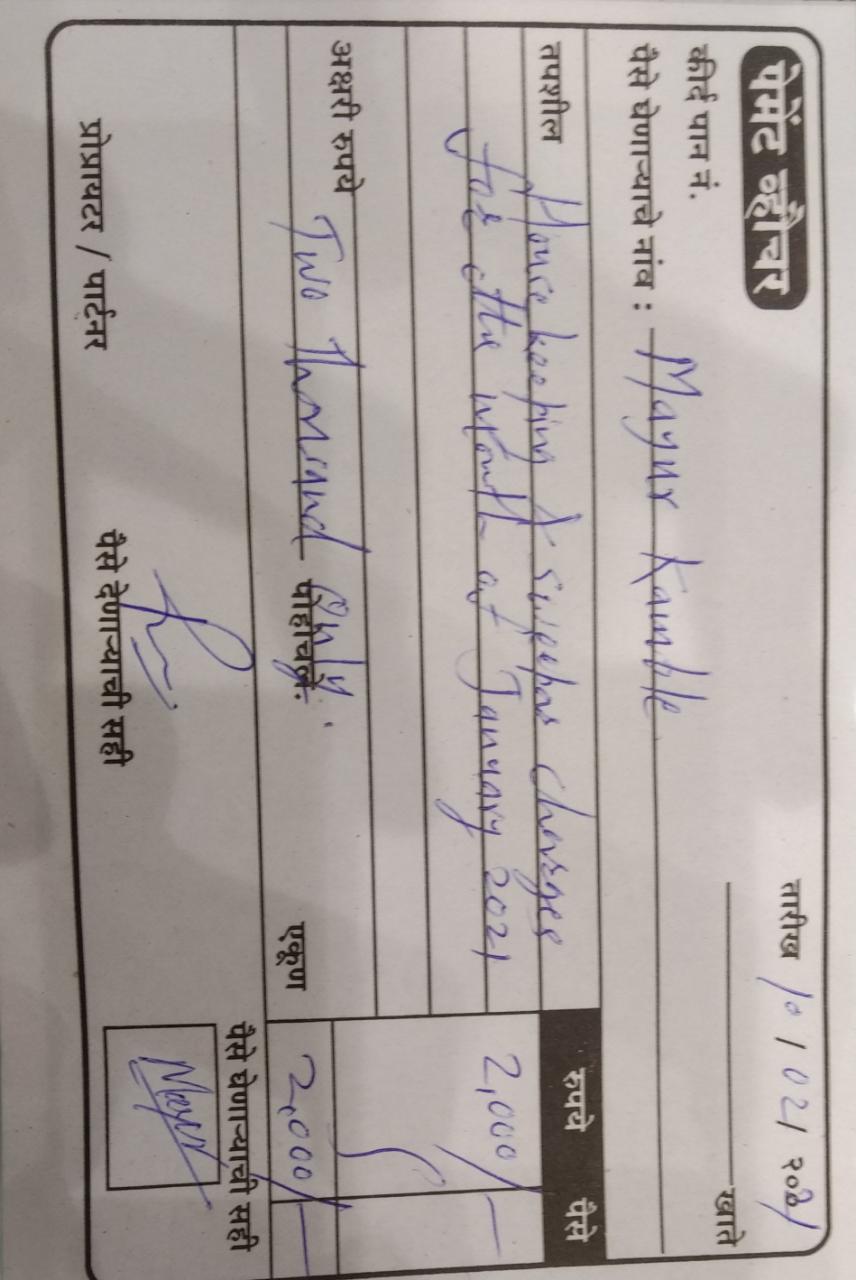 पेमेंट व्हौचर
तारीख 10 / 02 / २०21
कीर्द पान नं.
खाते
पैसे घेणाऱ्याचे नांव : Mayur Kamble
तपशील
रुपये पैसे
House keeping & sweepers charges
for the month of January 2021 2,000/-
अक्षरी रुपये Two Thousand Only. पोहोचले.
एकूण 2,000/-
प्रोप्रायटर / पार्टनर
पैसे देणाऱ्याची सही
पैसे घेणाऱ्याची सही
Mayur